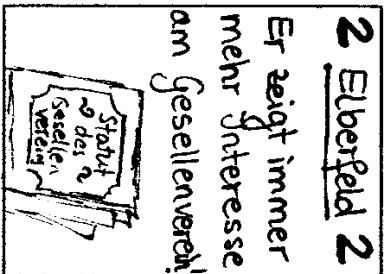 2 Elberfeld 2
Er zeigt immer
mehr Interesse
am Gesellenverein!
Statut
~ des ~
Gesellen
verein